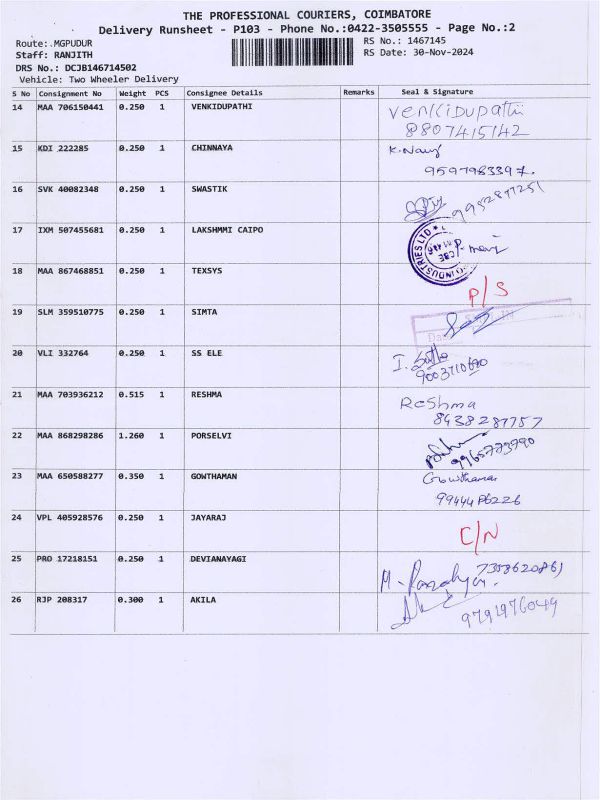 THE PROFESSIONAL COURIERS, COIMBATORE
Delivery Runsheet - P103 - Phone No.:0422-3505555 - Page No.:2
Route: MGPUDUR
RS No.: 1467145
Staff: RANJITH
RS Date: 30-Nov-2024
DRS No.: DCJB146714502
Vehicle: Two Wheeler Delivery
S No Consignment No Weight PCS Consignee Details Remarks Seal & Signature
14 MAA 706150441 0.250 1 VENKIDUPATHI Venkidupathi
8807415142
15 KDI 222285 0.250 1 CHINNAYA
9597983397.
16 SVK 40082348 0.250 1 SWASTIK
17 IXM 507455681 0.250 1 LAKSHMMI CAIPO
INDUSTRIES LTD
18 MAA 867468851 0.250 1 TEXSYS P/S
19 SLM 359510775 0.250 1 SIMTA
20 VLI 332764 0.250 1 SS ELE
21 MAA 703936212 0.515 1 RESHMA Reshma
8438287757
22 MAA 868298286 1.260 1 PORSELVI
9965773790
23 MAA 650588277 0.350 1 GOWTHAMAN Gowthaman
24 VPL 405928576 0.250 1 JAYARAJ C/N
25 PRO 17218151 0.250 1 DEVIANAYAGI
26 RJP 208317 0.300 1 AKILA
9791976049